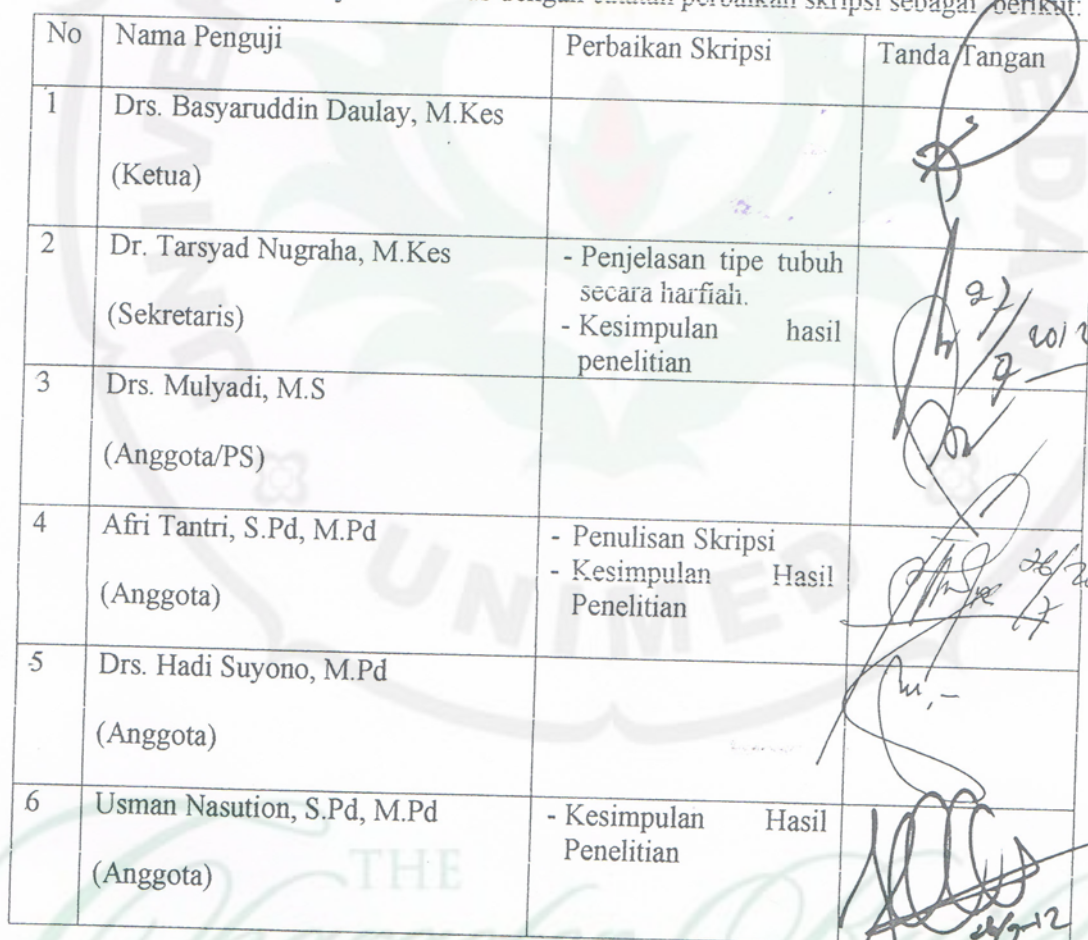 dengan catatan perbaikan skripsi sebagai berikut:
No Nama Penguji Perbaikan Skripsi Tanda Tangan
1 Drs. Basyaruddin Daulay, M.Kes
(Ketua)
2 Dr. Tarsyad Nugraha, M.Kes - Penjelasan tipe tubuh
secara harfiah.
(Sekretaris) - Kesimpulan hasil
penelitian
27/9 2012
3 Drs. Mulyadi, M.S
(Anggota/PS)
4 Afri Tantri, S.Pd, M.Pd - Penulisan Skripsi
- Kesimpulan Hasil
(Anggota) Penelitian
5 Drs. Hadi Suyono, M.Pd
(Anggota)
6 Usman Nasution, S.Pd, M.Pd - Kesimpulan Hasil
Penelitian
(Anggota)
UNIMED
THE